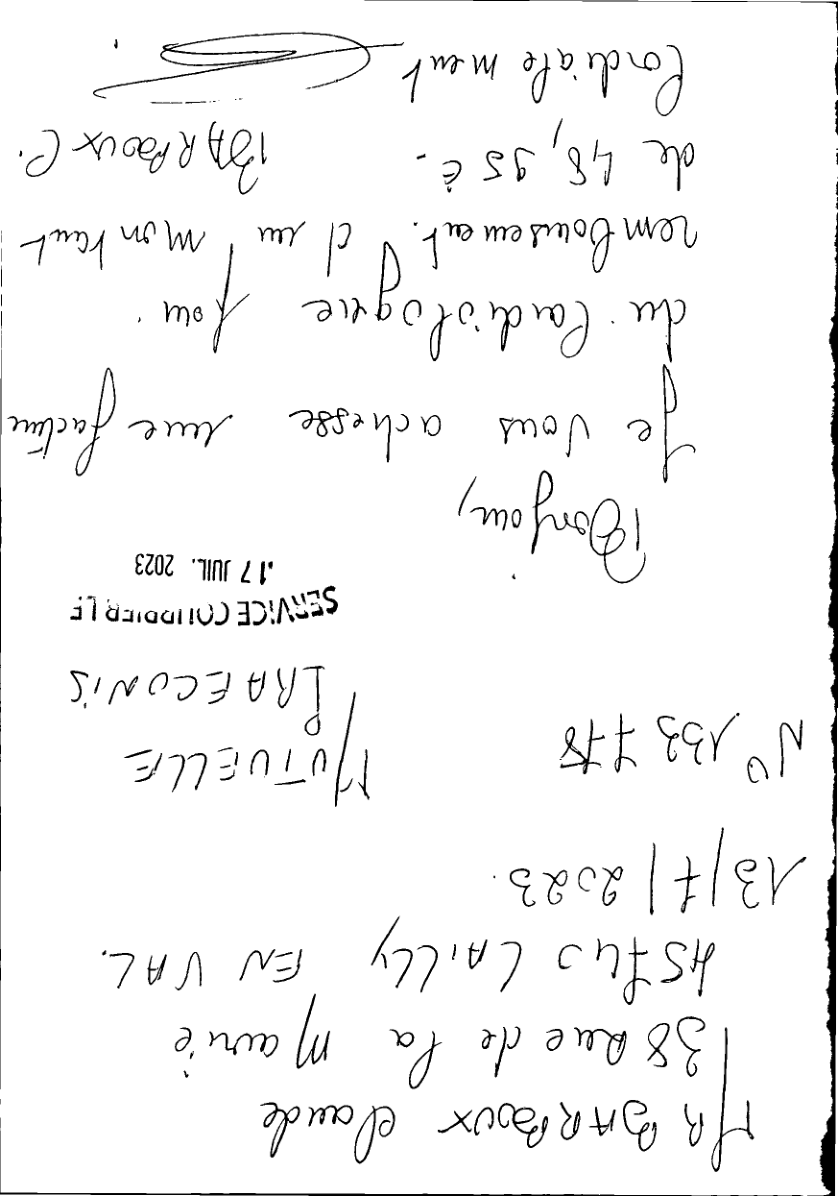 MR BARBOUX Claude
38 Rue de la Mairie
45740 LAILLY EN VAL.
13/7/2023.
N° 133778
MUTUELLE
PRAECONIS
SERVICE COURRIER LE
17 JUIL. 2023
Bonjour,
Je vous adresse une facture
du Cardiologue pour
remboursement. d'un montant
de 48,95 €.
BARBOUX C.
Cordialement